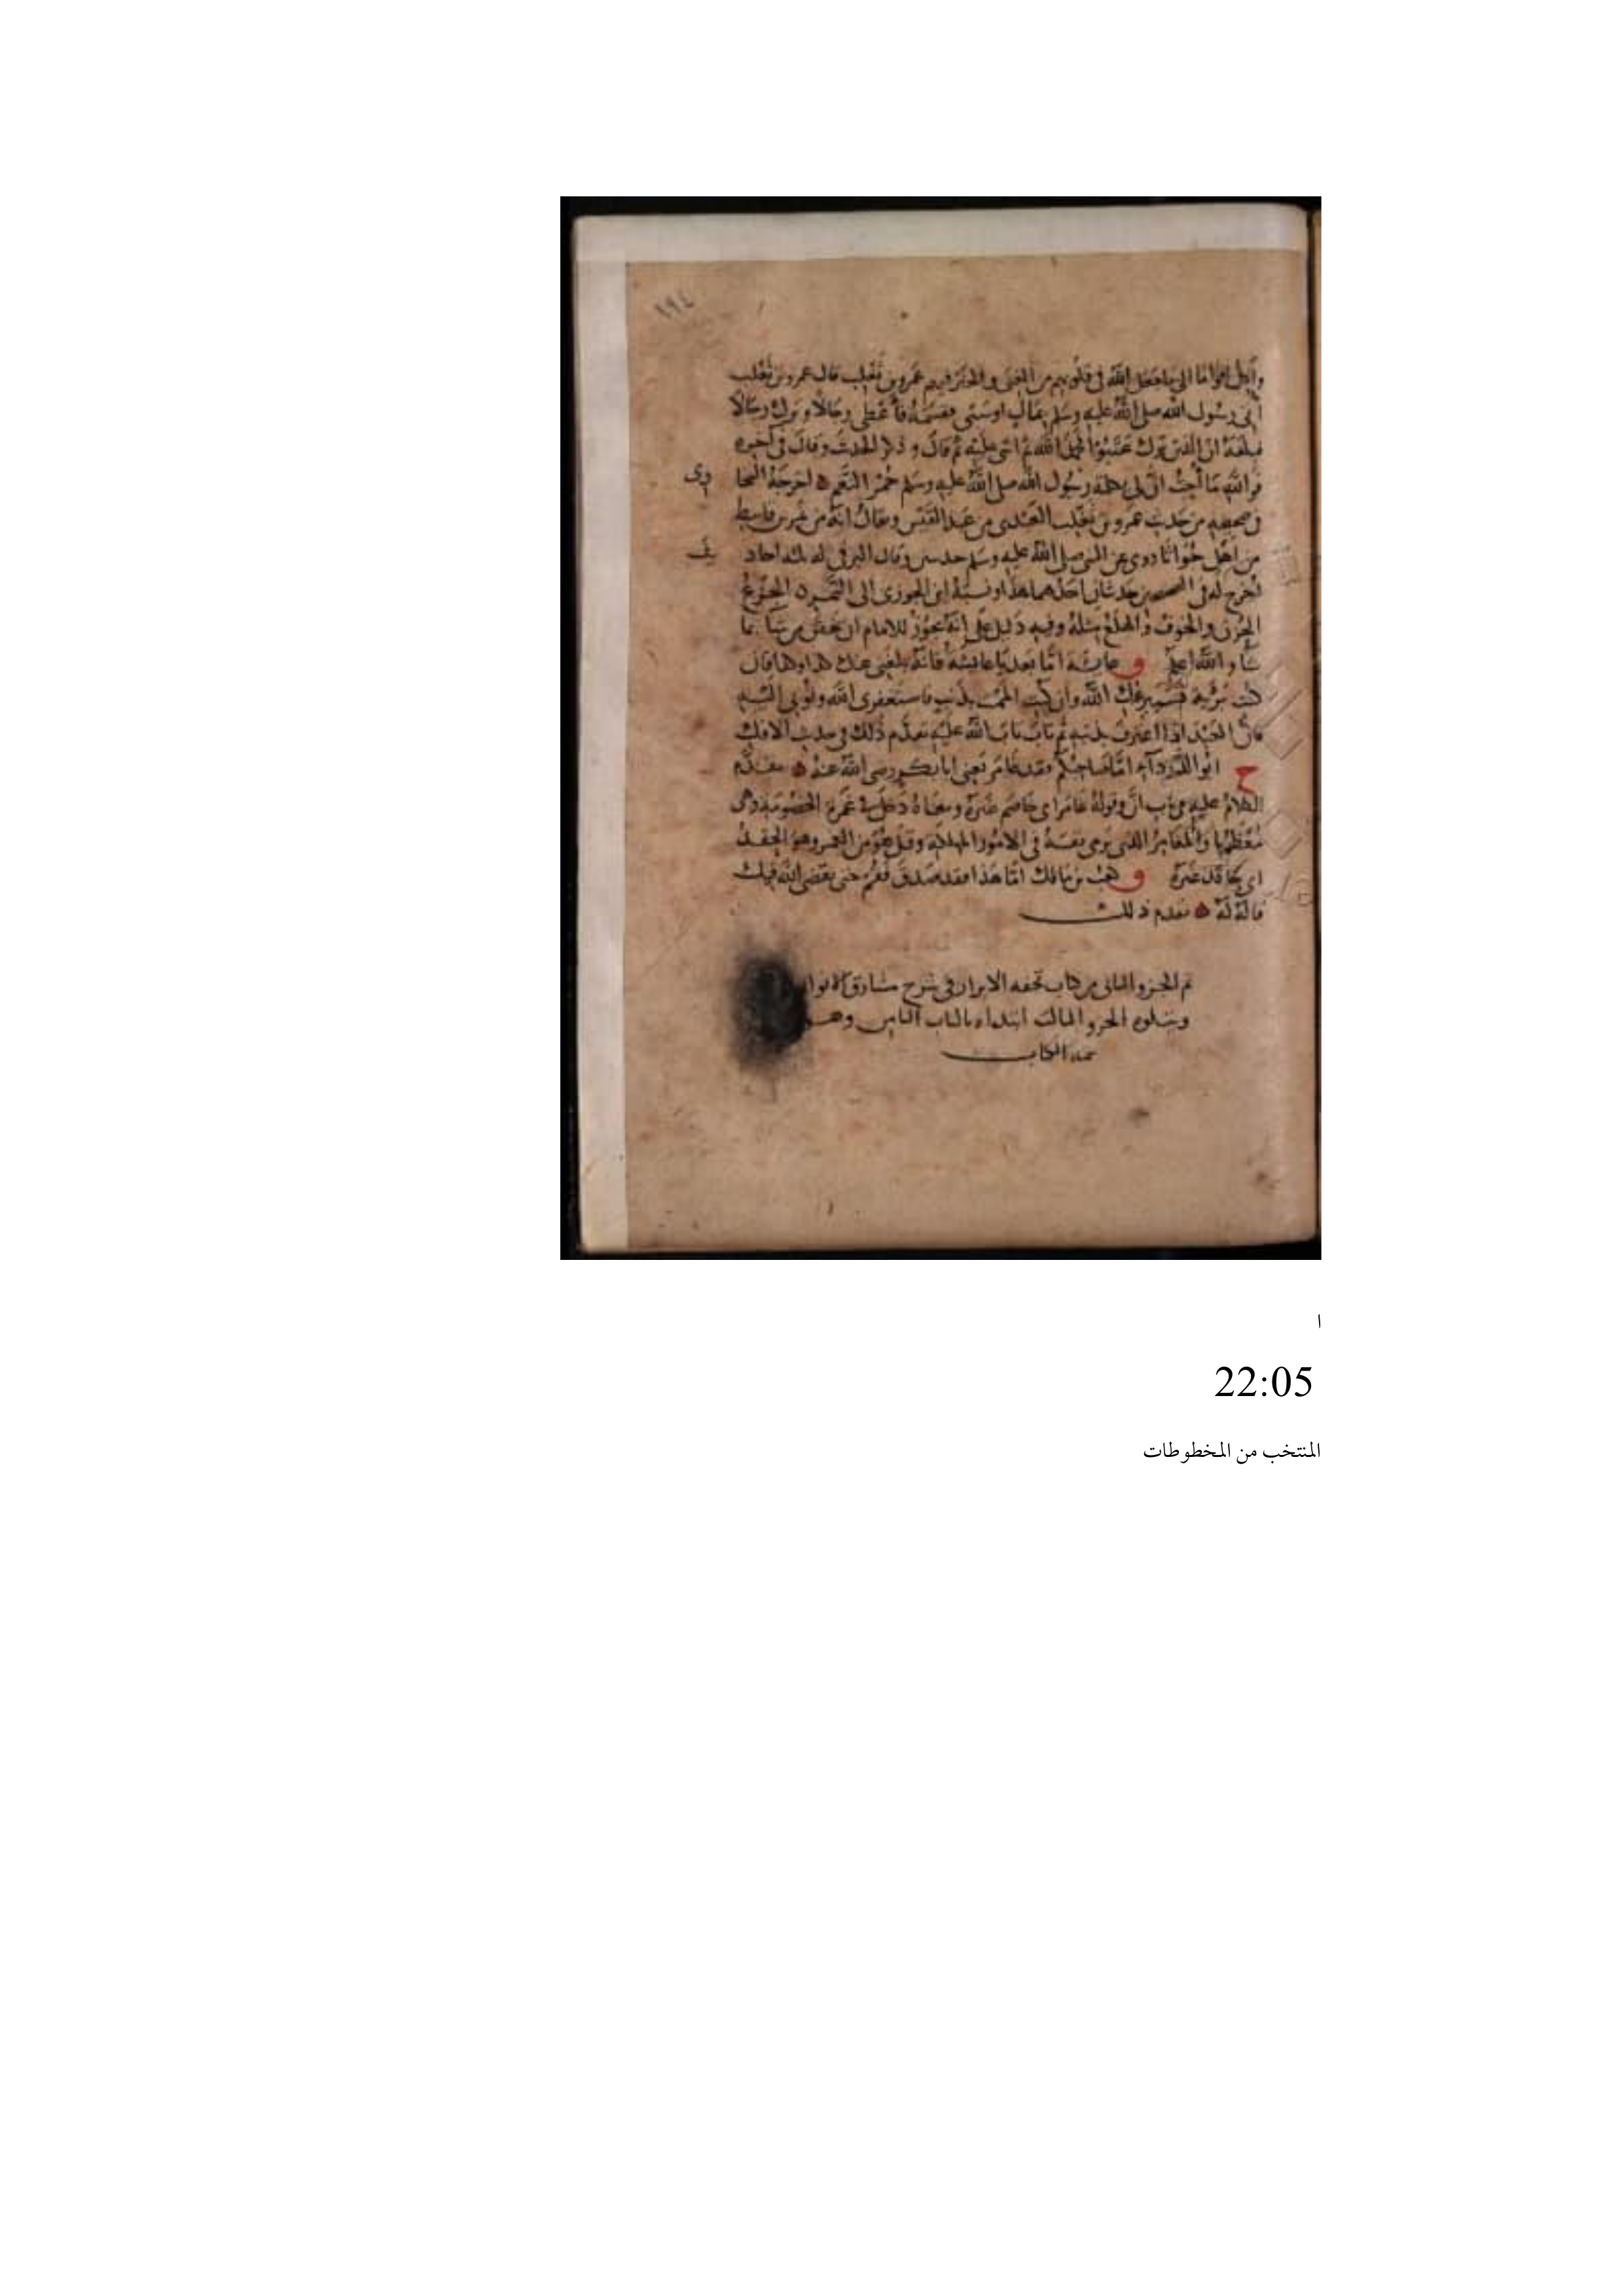 ١٩٤
وأكل أقواما الى ما جعل الله فى قلوبهم من الغنى والخير فيهم عمرو بن تغلب قال عمرو بن تغلب
أتى رسول الله صلى الله عليه وسلم بمال او سبي فقسمه فأعطى رجالا وترك رجالا
فبلغه ان الذين ترك عتبوا فحمد الله ثم اثنى عليه ثم قال وذكر الحديث وقال فى آخره
فوالله ما أحب ان لى بكلمة رسول الله صلى الله عليه وسلم حمر النعم ه اخرجه البخا
رى
فى صحيحه من حديث عمرو بن تغلب العبدى من عبد القيس ويقال انه من نمر بن قاسط
من اهل جواثا روى عن النبى صلى الله عليه وسلم حديثين وقال البرقى له ثلثه احاد
يث
اخرج له فى الصحيحين حديثان احدهما هذا ونسبه ابن الجوزى الى النمر ه الجزع
الحزن والخوف والهلع مثله وفيه دليل على انه يجوز للامام ان يخص من شا بما
شا والله اعلم ق عايشة امّا بعد يا عايشة فانه بلغنى عنك كذا وكذا فان
كنت برئية فسيبرئك الله وان كنت الممت بذنب فاستغفرى الله وتوبى اليه
فان العبد اذا اعترف بذنبه ثم تاب تاب الله عليه تقدم ذلك فى حديث الافك
خ ابو الدرداء امّا صاحبكم فقد غامر يعنى ابا بكر رضى الله عنه ه تقدم
الكلام عليه فى باب انّ وقوله غامر اى خاصم غيره ومعناه دخل فى غمرة الخصومة وهى
معظمها والمغامر الذى يرمى بنفسه فى الامور المهلكة وقيل هو من الغمر وهو الحقد
اى حاقد غيره ق كعب بن مالك امّا هذا فقد صدق فقم حتى يقضى الله فيك
قاله له ه تقدم ذلك
تم الجزو الثانى من كتاب تحفه الابرار فى شرح مشارق الانوا
ويتلوه الجزو الثالث ابتداءه بالباب الثامن وهو
تمه الكتاب
ا
22:05
المنتخب من المخطوطات